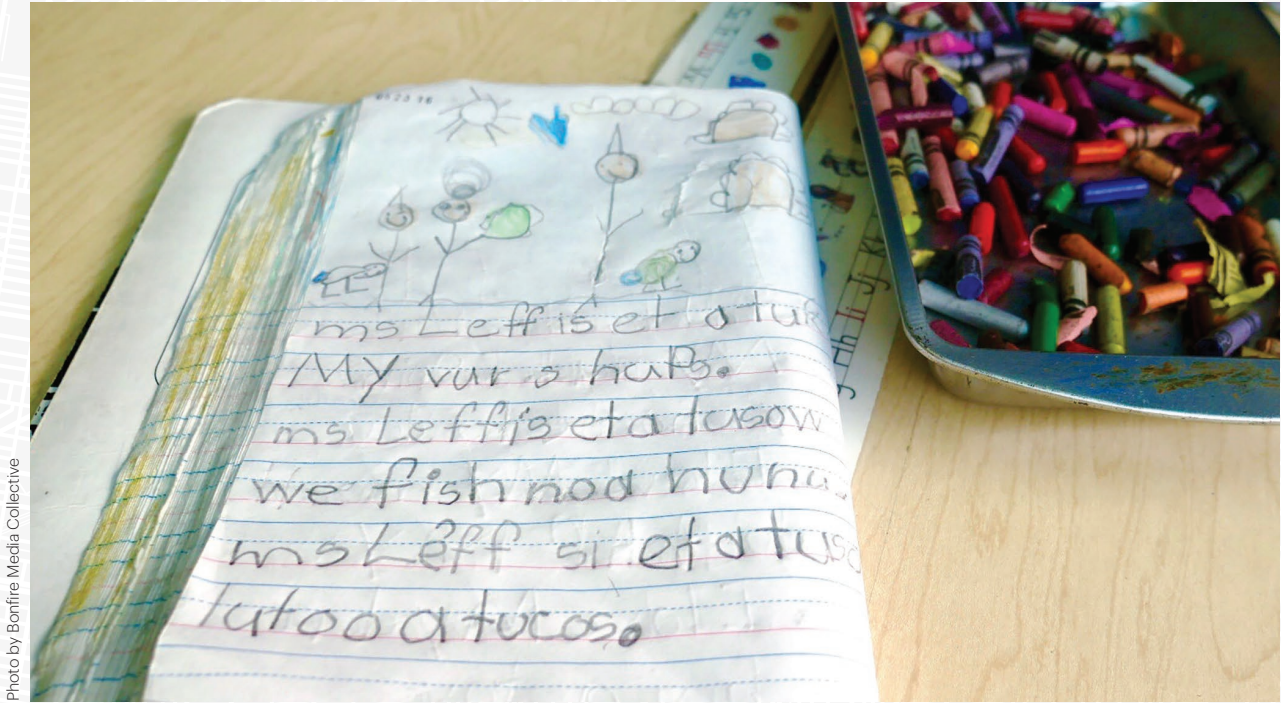 Photo by Bonfire Media Collective
ms Leff is et a tuk
My vur s hups.
ms Leff is et a tusow
we fish nod huna
ms Leff si et a tuse
lutoo a tucos.
Hh Ii Jj K